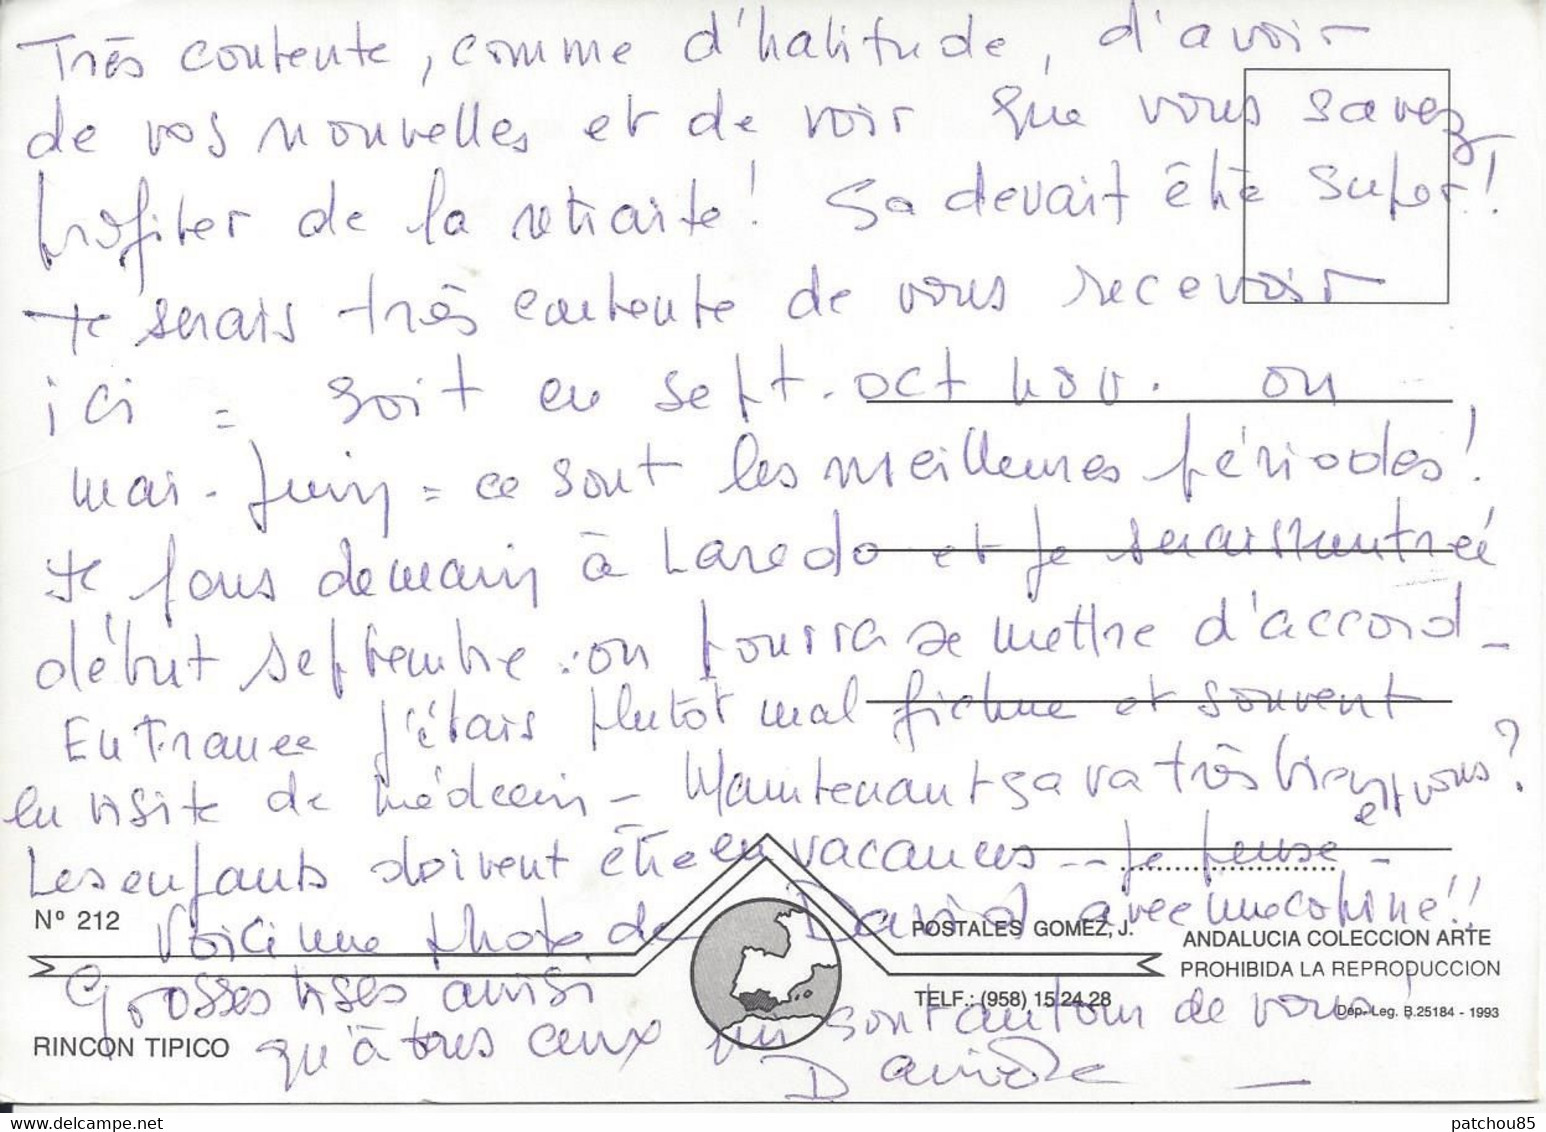 Très contente, comme d'habitude, d'avoir
de vos nouvelles et de voir que vous savez
profiter de la retraite! Sa devait être super!
Je serais très contente de vous recevoir
ici = soit en sept. oct nov. ou
mai - Juin = ce sont les meilleures périodes!
Je pars demain à Laredo et je serais rentrée
début septembre : on pourra se mettre d'accord -
En France j'étais plutôt mal fichue et souvent
en visite de médecin - Maintenant sa va très bien et vous?
Les enfants doivent être en vacances -- Je pense -
Voici une photo de David avec une copine!!
Grosses bises ainsi
qu'à tous ceux qui sont autour de vous!
Danièle
Nº 212
RINCON TIPICO
POSTALES GOMEZ, J.
TELF.: (958) 15.24.28
ANDALUCIA COLECCION ARTE
PROHIBIDA LA REPRODUCCION
Dep. Leg. B.25184 - 1993
patchou85